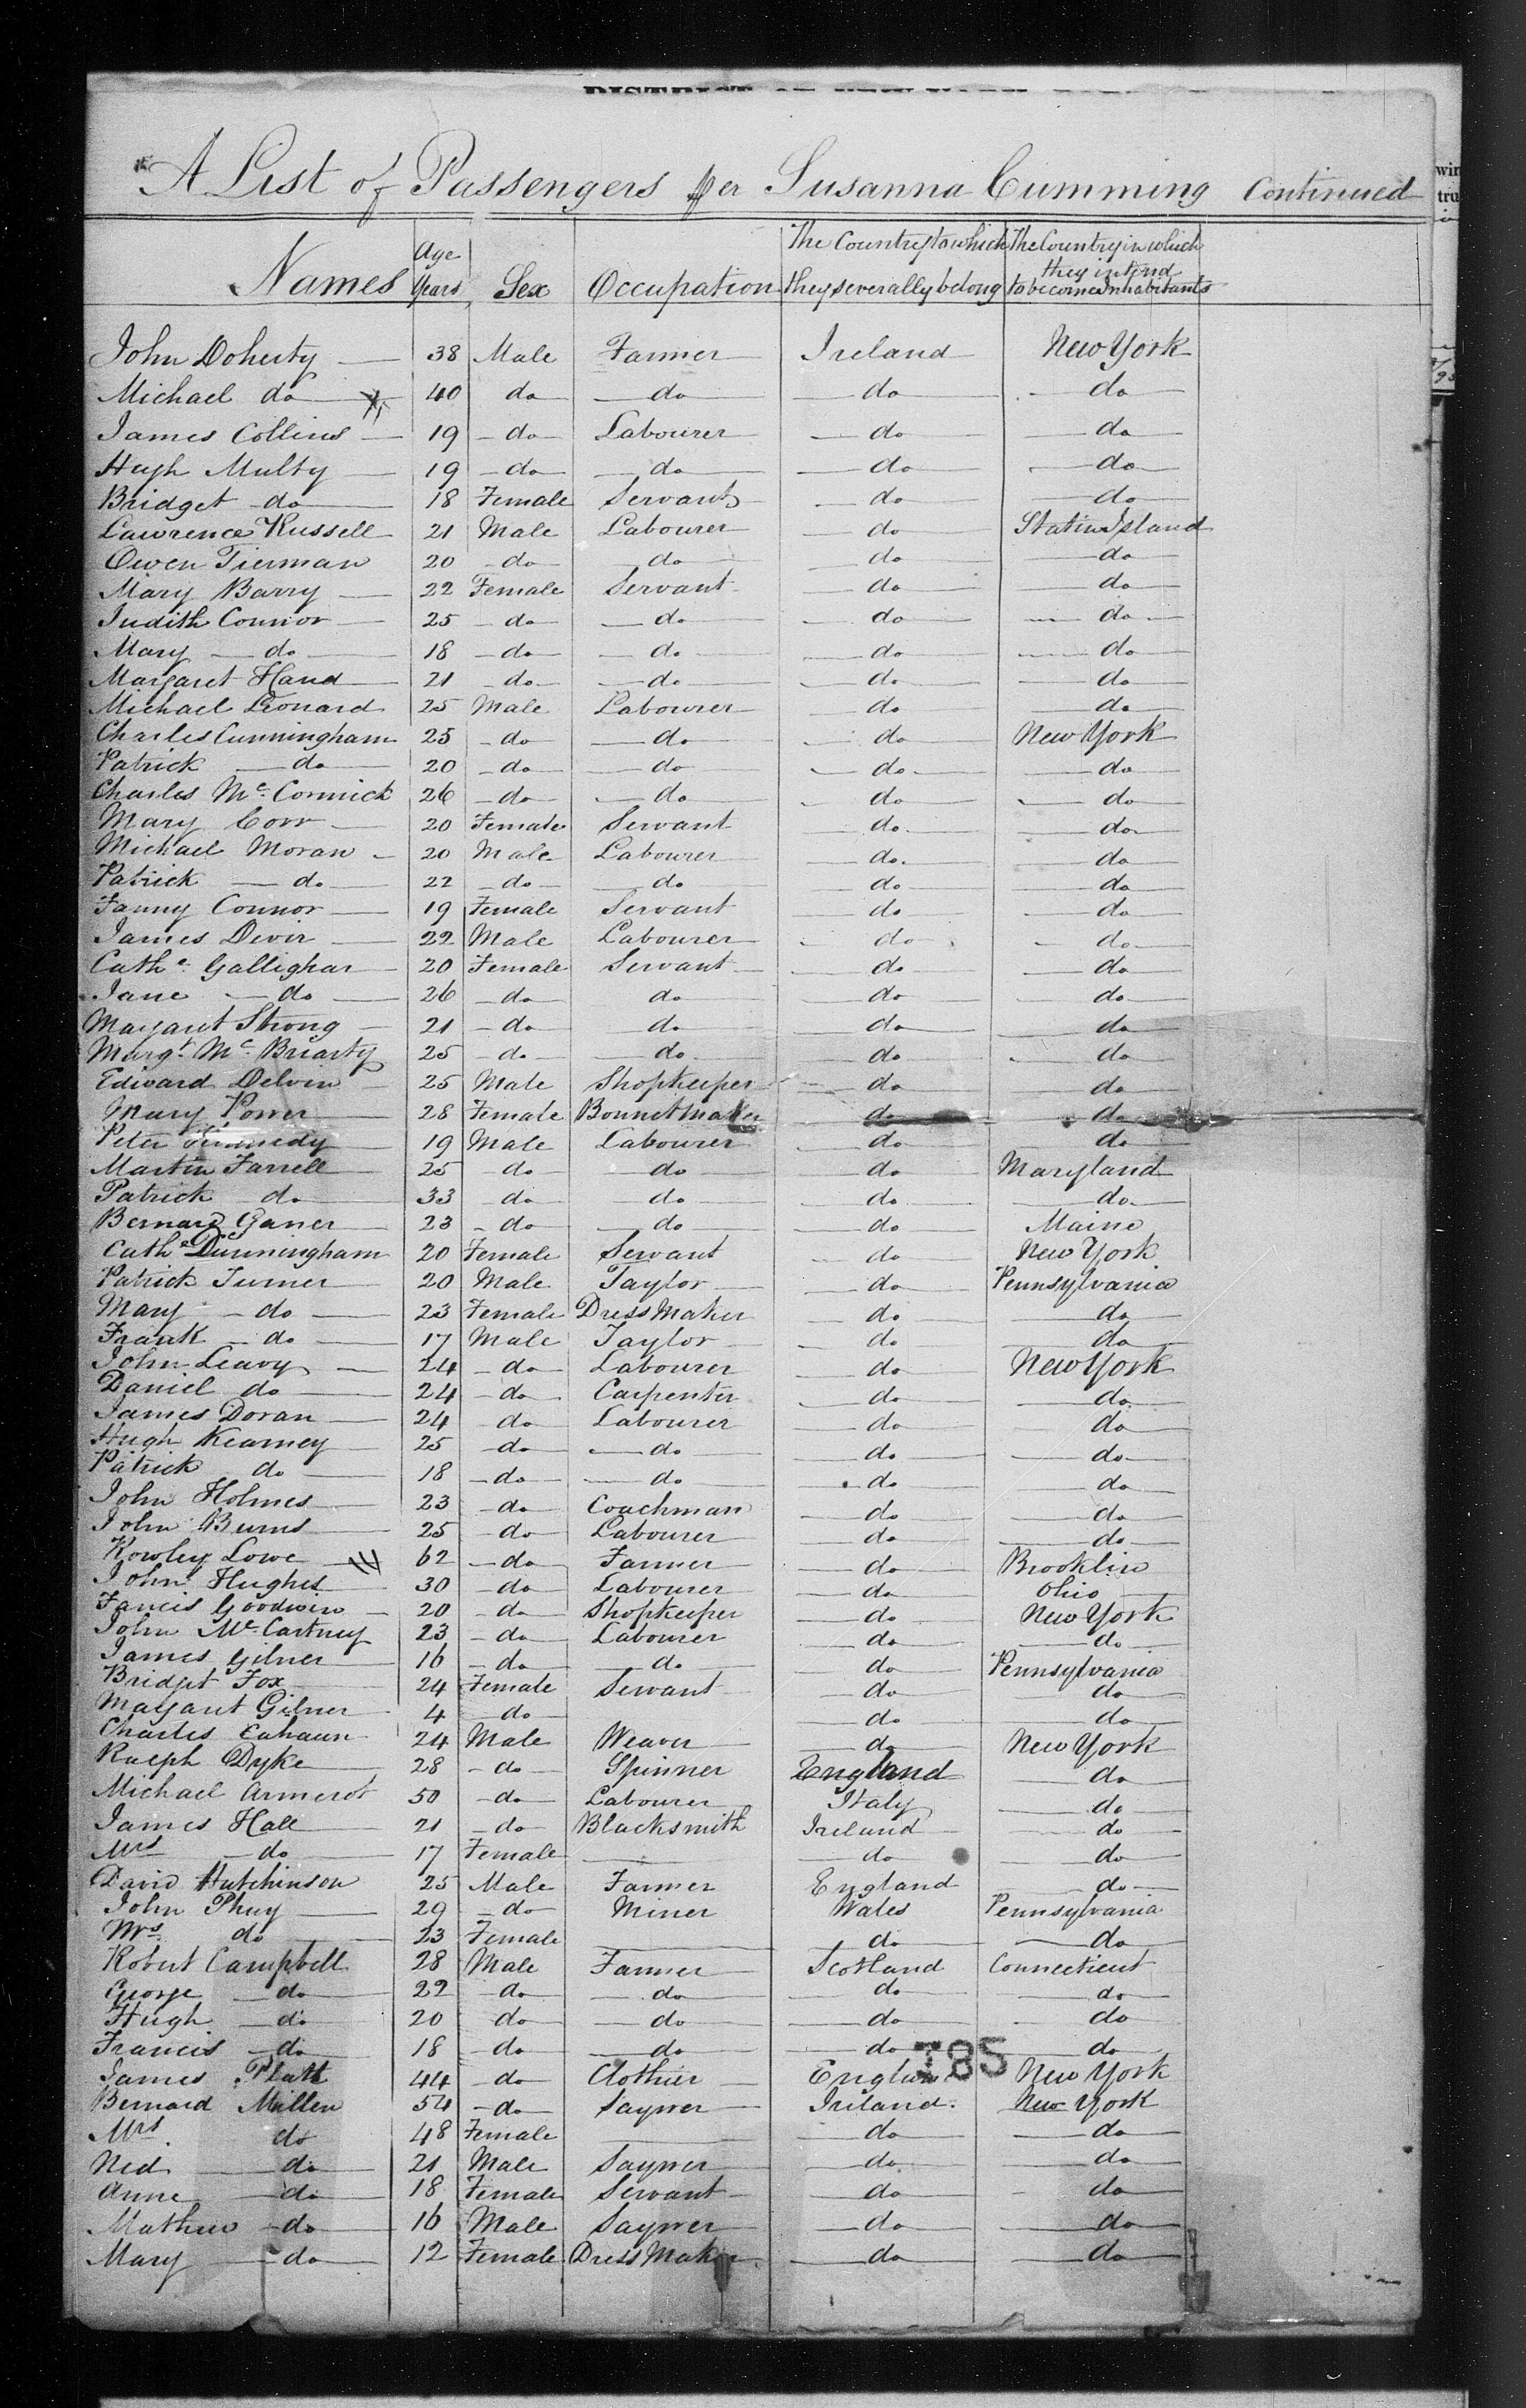 A List of Passengers per Susanna Cumming Continued
Names Age Years Sex Occupation The Country to which they severally belong The Country in which they intend to become Inhabitants
John Doherty 38 Male Farmer Ireland New York
Michael do 40 do do do do
James Collins 19 do Labourer do do
Hugh Multy 19 do do do do
Bridget do 18 Female Servant do do
Lawrence Russell 21 Male Labourer do Statin Island
Owen Tierman 20 do do do do
Mary Barry 22 Female Servant do do
Judith Connor 25 do do do do
Mary do 18 do do do do
Margaret Hand 21 do do do do
Michael Leonard 25 Male Labourer do do
Charles Cunningham 25 do do do New York
Patrick do 20 do do do do
Charles Mc Cormick 26 do do do do
Mary Corr 20 Female Servant do do
Michael Moran 20 Male Labourer do do
Patrick do 22 do do do do
Fanny Connor 19 Female Servant do do
James Devir 22 Male Labourer do do
Cathe Gallighar 20 Female Servant do do
Jane do 26 do do do do
Margaret Strong 21 do do do do
Margt Mc Briarty 25 do do do do
Edward Delvin 25 Male Shopkeeper do do
Mary Power 28 Female Bonnetmaker do do
Peter Kennedy 19 Male Labourer do do
Martin Farrell 25 do do do Maryland
Patrick do 33 do do do do
Bernard Ganer 23 do do do Maine
Cathe Dunningham 20 Female Servant do New York
Patrick Turner 20 Male Taylor do Pennsylvania
Mary do 23 Female Dress Maker do do
Frank do 17 Male Taylor do do
John Leavy 24 do Labourer do New York
Daniel do 24 do Carpenter do do
James Doran 24 do Labourer do do
Hugh Kearney 25 do do do do
Patrick do 18 do do do do
John Holmes 23 do Coachman do do
John Burns 25 do Labourer do do
Rowley Lowe 62 do Farmer do Brooklin
John Hughes 30 do Labourer do Ohio
Fancis Goodwin 20 do Shopkeeper do New York
John Mc Cartney 23 do Labourer do do
James Gilner 16 do do do Pennsylvania
Bridget Fox 24 Female Servant do do
Margaret Gilner 4 do do do
Charles 24 Male Weaver do New York
Ralph Dyke 28 do Spinner England do
Michael 50 do Labourer Italy do
James Hall 21 do Blacksmith Ireland do
Mrs do 17 Female do do
David Hutchinson 25 Male Farmer England do
John Phuy 29 do Miner Wales Pennsylvania
Mrs do 23 Female do do
Robert Campbell 28 Male Farmer Scotland Connecticut
George do 22 do do do do
Hugh do 20 do do do do
Francis do 18 do do do do
785
James Platt 44 do Clothier England New York
Bernard Mullen 54 do Saywer Ireland New York
Mrs do 48 Female do do
Ned do 21 Male Saywer do do
Anne do 18 Female Servant do do
Mathew do 16 Male Saywer do do
Mary do 12 Female Dress Maker do do